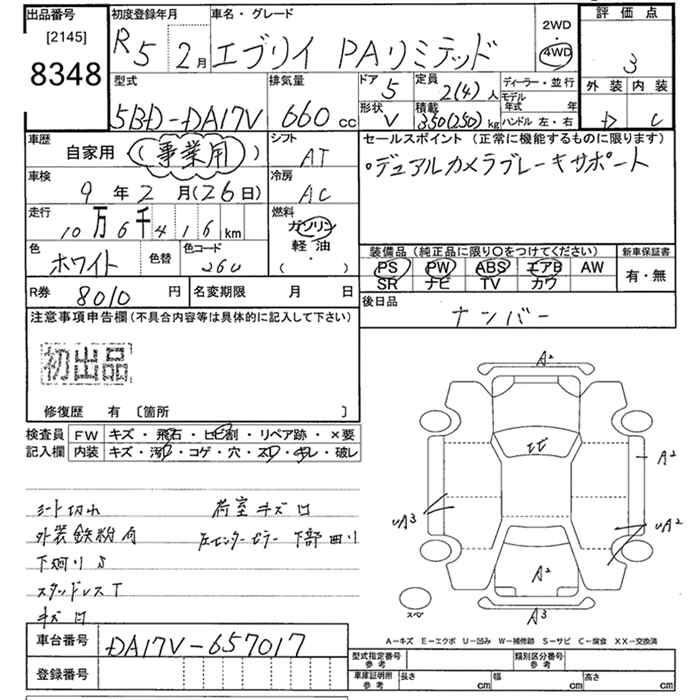 出品番号 [2145] 8348
初度登録年月 R5 2月
車名・グレード エブリイ PAリミテッド
2WD
4WD
評価点 3
外装 D 内装 C
型式 5BD-DA17V
排気量 660 cc
ドア 5
形状 V
定員 2(4)人
積載 350(250)kg
ディーラー・並行
モデル年式 年
ハンドル 左・右
車歴 自家用 (事業用)
シフト AT
車検 9年2月(26日)
冷房 AC
走行 10万6千416km
燃料 ガソリン 軽油 ( ・ )
色 ホワイト 色替 色コード 26U
セールスポイント (正常に機能するものに限ります)
・デュアルカメラブレーキサポート
装備品 (純正品に限り○をつけてください)
新車保証書
PS PW ABS エアB AW
SR ナビ TV カワ
有・無
R券 8010円 名変期限 月 日
後日品 ナンバー
注意事項申告欄 (不具合内容等は具体的に記入して下さい)
初出品
修復歴 有 〔箇所 〕
検査員記入欄
FW キズ・飛石・ヒビ割・リペア跡・×要
内装 キズ・汚・コゲ・穴・スレ・切レ・破レ
シート切れ 荷室キズ凹
外装鉄粉有 左センターピラー下部曲り
下廻りS
スタッドレスT
キズ凹
A2
ヒビ
A2
UA3
UA2
A2
A3
スペア
A－キズ E－エクボ U－凹み W－補修跡 S－サビ C－腐食 XX－交換済
車台番号 DA17V-657017
登録番号
型式指定番号 参考
類別区分番号 参考
車庫証明用 参考 長さ cm 幅 cm 高さ cm